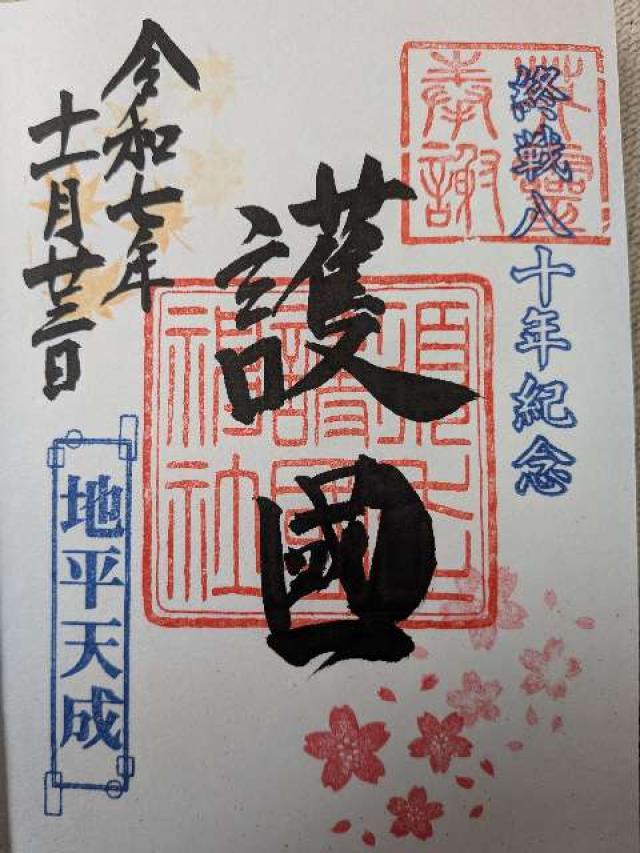 英靈
奉謝
終戦八十年紀念
護國
護國
神社
令和七年
十一月廿三日
地平天成